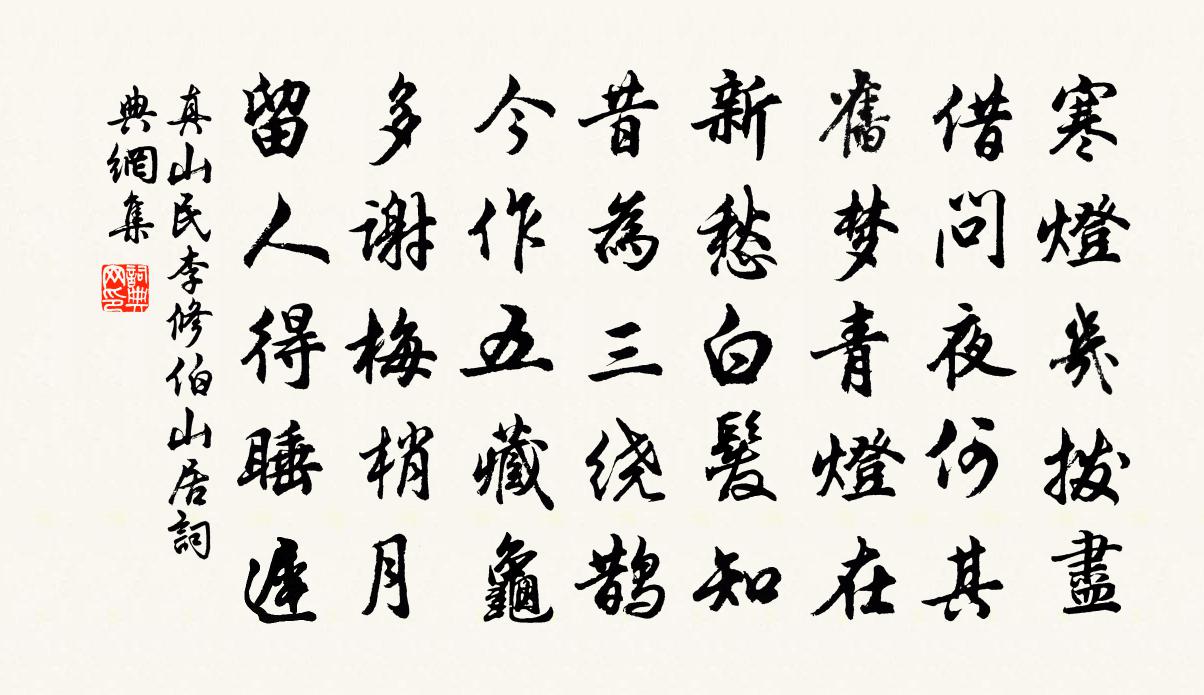 寒燈幾拨盡
借問夜何其
舊梦青燈在
新愁白髮知
昔為三绕鹊
今作五藏龜
多謝梅梢月
留人得睡遲
真山民李修伯山居詞
典網集
詞典网印